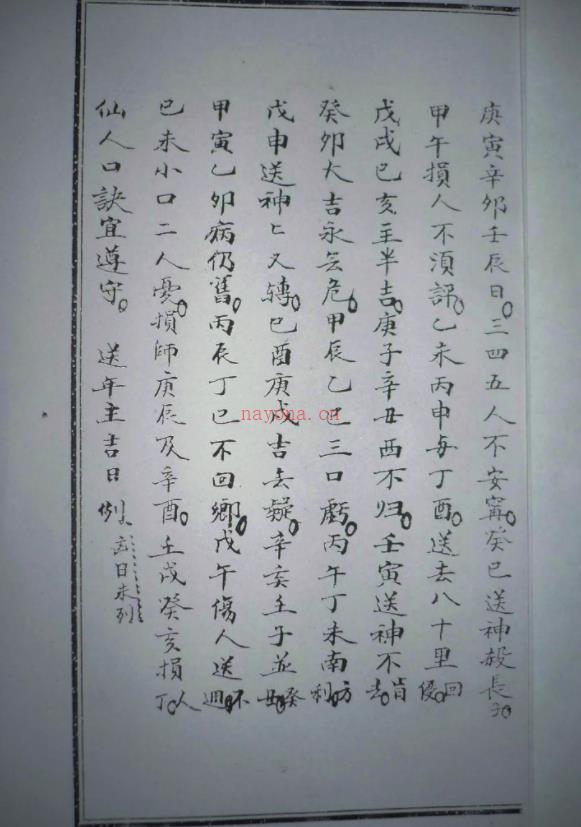 庚寅辛卯壬辰日。三四五人不安寗。癸巳送神殺長子。
甲午損人不須評。乙未丙申每丁酉。送去八十里回侵。
戊戌巳亥主半吉。庚子辛丑西不归。壬寅送神不肯去。
癸卯大吉永无危。甲辰乙巳三口虧。丙午丁未南方利。
戊申送神匕又轉。巳酉庚戌吉去疑。辛亥壬子並癸丑。
甲寅乙卯病仍舊。丙辰丁巳不回鄉。戊午傷人送不週。
巳未小口二人憂。損師庚辰及辛酉。壬戌癸亥損人丁。
仙人口訣宜遵守。 送年主吉日例 日未列
nayona.cn